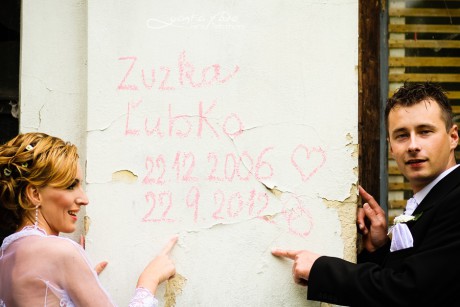 Zuzka
Ľubko
22.12.2006
22.9.2012